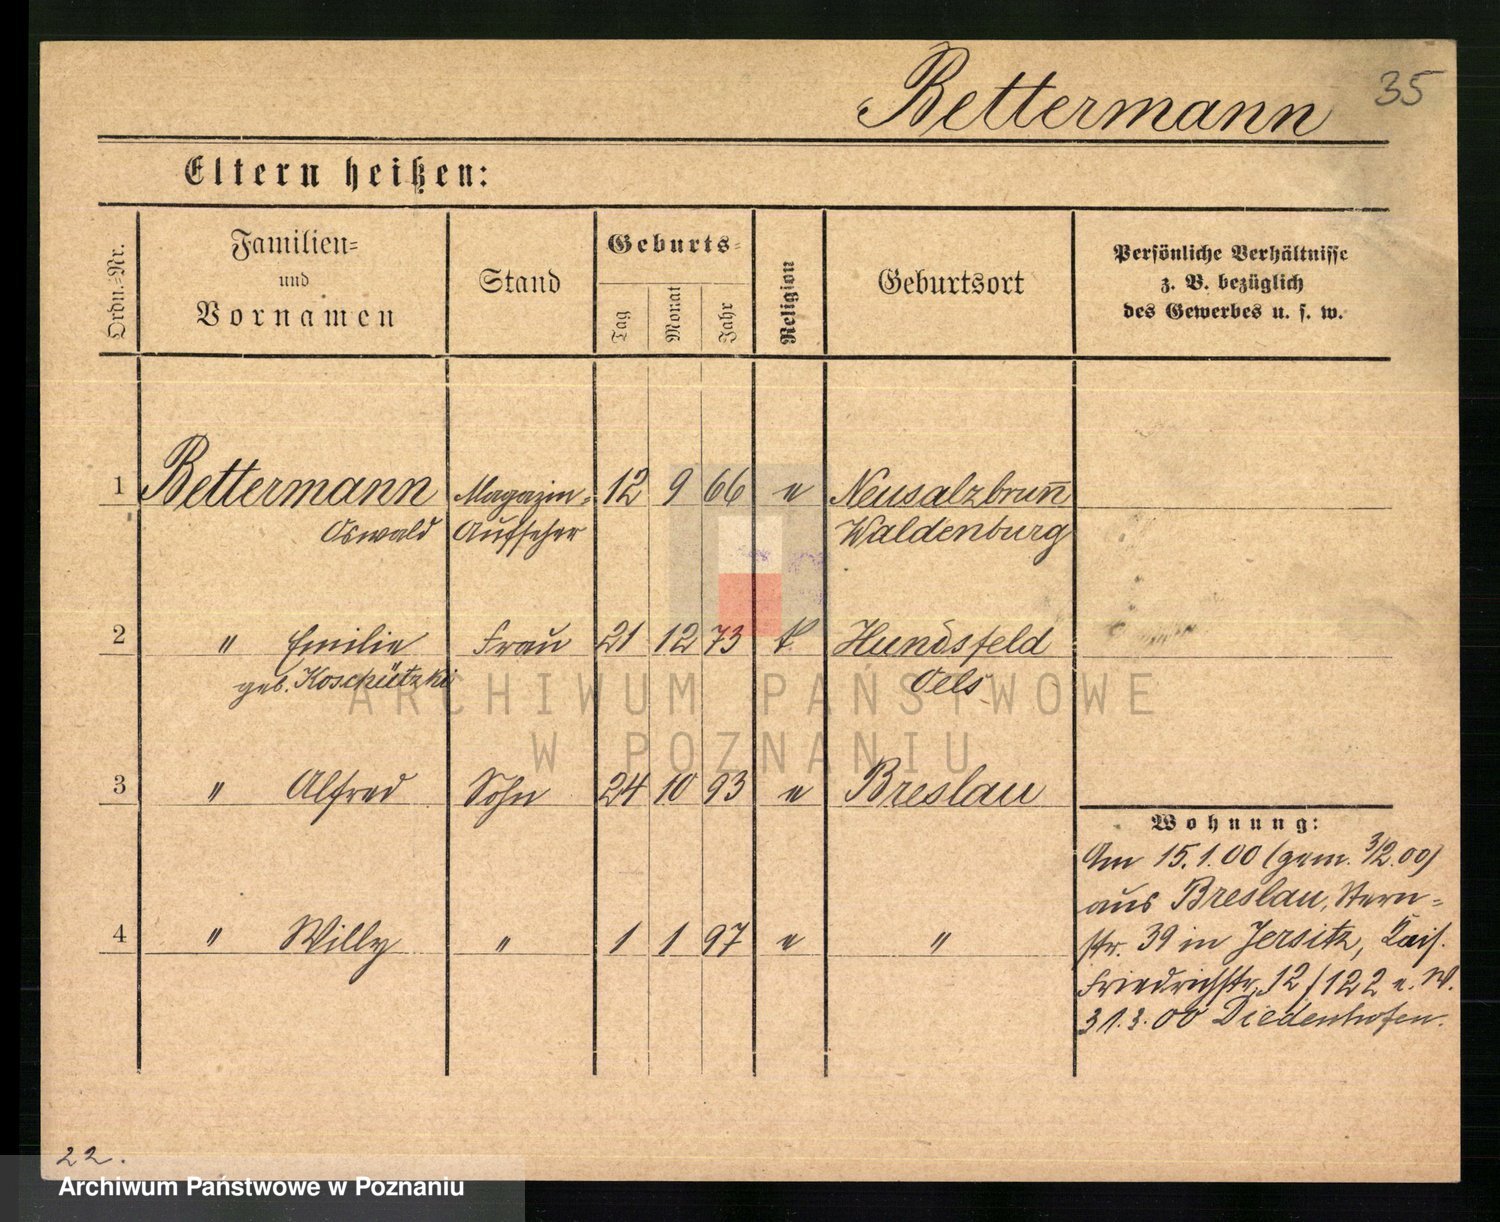 Bettermann 35
Eltern heißen:
Ordn.-Nr.
Familien-
und
Vornamen
Stand
Geburts-
Tag
Monat
Jahr
Religion
Geburtsort
Persönliche Verhältnisse
z. B. bezüglich
des Gewerbes u. s. w.
1 Bettermann Magazin- 12 9 66 e Neusalzbrunn
Oswald Aufseher Waldenburg
2 " Emilie Frau 21 12 73 k. Hundsfeld
geb. Koschützki Oels
ARCHIWUM PAŃSTWOWE
W POZNANIU
3 " Alfred Sohn 24 10 93 e Breslau
4 " Willy " 1 1 97 e "
Wohnung:
Am 15.1.00 (gem. 3/2.00)
aus Breslau, Stern-
str. 39 in Jersitz, Kais.
Friedrichstr. 12 / 122 e. W.
31.3.00 Diedenhofen.
22.
Archiwum Państwowe w Poznaniu